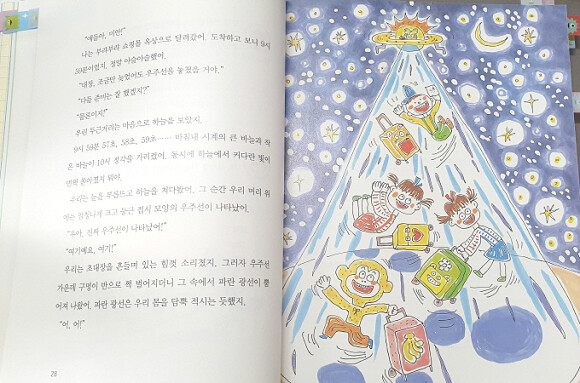 "얘들아, 미안!"
나는 부랴부랴 쇼핑몰 옥상으로 달려갔어. 도착하고 보니 9시
59분이었지. 정말 아슬아슬했어.
"대장, 조금만 늦었어도 우주선을 놓쳤을 거야."
"다들 준비는 잘 했겠지?"
"물론이지!"
우린 두근거리는 마음으로 하늘을 보았지.
9시 59분 57초, 58초, 59초…… 마침내 시계의 큰 바늘과 작
은 바늘이 10시 정각을 가리켰어. 동시에 하늘에서 커다란 빛이
번쩍 쏟아졌지 뭐야.
우리는 눈을 부릅뜨고 하늘을 쳐다봤어. 그 순간 우리 머리 위
에는 엄청나게 크고 둥근 접시 모양의 우주선이 나타났어.
"우아, 진짜 우주선이 나타났어!"
"여기예요, 여기!"
우리는 초대장을 흔들며 있는 힘껏 소리쳤지. 그러자 우주선
가운데 구멍이 반으로 쩍 벌어지더니 그 속에서 파란 광선이 뿜
어져 나왔어. 파란 광선은 우리 몸을 담뿍 적시는 듯했지.
"어, 어!"
28